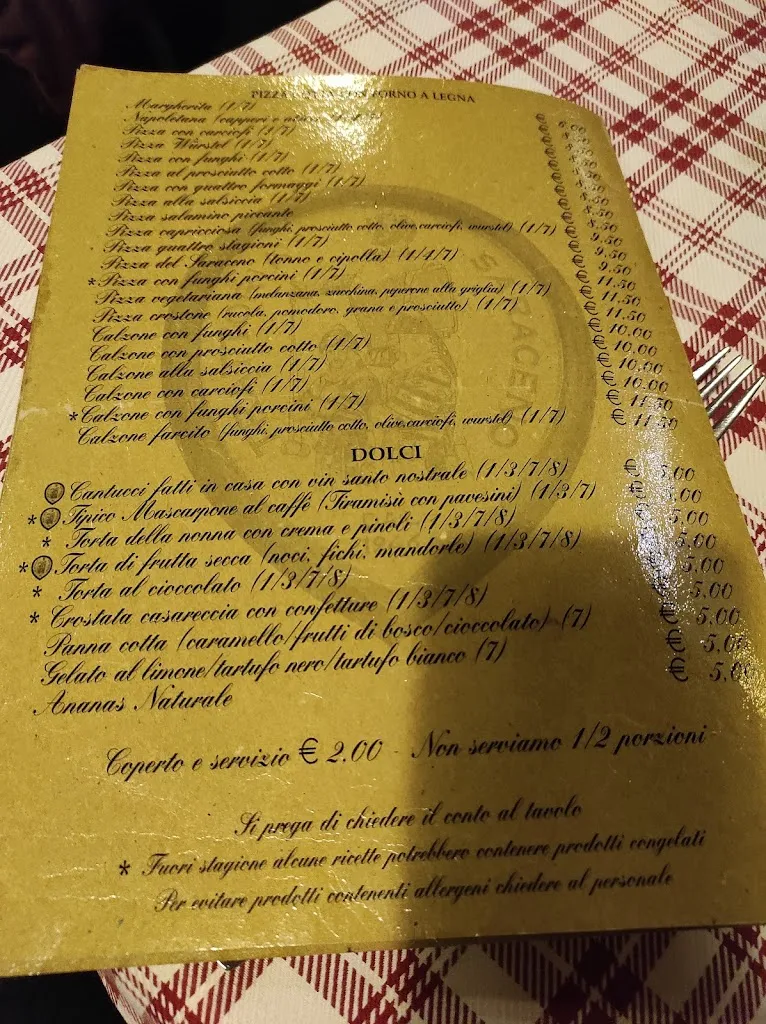 PIZZA FORNO A LEGNA
Margherita (1/7)
Napoletana (capperi e
Pizza con carciofi (1/7)
Pizza Würstel (1/7)
Pizza con funghi (1/7)
Pizza al prosciutto cotto (1/7)
Pizza con quattro formaggi (1/7)
Pizza alla salsiccia (1/7)
Pizza salamino piccante
Pizza capricciosa (funghi, prosciutto cotto, olive, carciofi, wurstel) (1/7) € 9.50
Pizza quattro stagioni (1/7) € 9.50
Pizza del Saraceno (tonno e cipolla) (1/4/7) € 9.50
*Pizza con funghi porcini (1/7) € 11.50
Pizza vegetariana (melanzana, zucchina, peperone alla griglia) (1/7) € 11.50
Pizza crostone (rucola, pomodoro, grana e prosciutto) (1/7) € 11.50
Calzone con funghi (1/7) € 10.00
Calzone con prosciutto cotto (1/7) € 10.00
Calzone alla salsiccia (1/7) € 10.00
Calzone con carciofi (1/7) € 10.00
*Calzone con funghi porcini (1/7) € 11.50
Calzone farcito (funghi, prosciutto cotto, olive, carciofi, wurstel) (1/7) € 11.50
DOLCI
Cantucci fatti in casa con vin santo nostrale (1/3/7/8) € 5.00
* Tipico Mascarpone al caffè (Tiramisù con pavesini) (1/3/7) € 5.00
* Torta della nonna con crema e pinoli (1/3/7/8) € 5.00
* Torta di frutta secca (noci, fichi, mandorle) (1/3/7/8) € 5.00
* Torta al cioccolato (1/3/7/8) € 5.00
* Crostata casareccia con confetture (1/3/7/8) € 5.00
Panna cotta (caramello/frutti di bosco/cioccolato) (7) € 5.00
Gelato al limone/tartufo nero/tartufo bianco (7) € 5.00
Ananas Naturale € 5.00
Coperto e servizio € 2.00 - Non serviamo 1/2 porzioni
Si prega di chiedere il conto al tavolo
* Fuori stagione alcune ricette potrebbero contenere prodotti congelati
Per evitare prodotti contenenti allergeni chiedere al personale